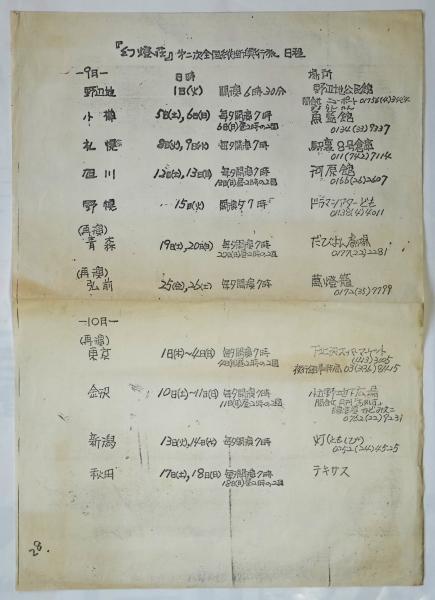 『幻燈荘』第二次全国縦断興行旅 日程
―9月― 日時 場所
野辺地 1日(火) 開演6時30分 野辺地公民館
小樽 5日(土),6日(日) 毎夕開演7時
6日(日)昼2時の2回
0134(33)9237
札幌 8日(火),9日(水) 毎夕開演7時 駅裏8号倉庫
011(742)7114
旭川 12日(土),13日(日) 毎夕開演7時 河原館
13日(日)昼2時の2回 0166(26)2607
野幌 15日(火) 開演夕7時 ドラマシアターども
(再演)
青森 19日(土),20日(日) 毎夕開演7時 だびよん劇場
20日(日)昼2時の2回 0177(22)2281
(再演)
弘前 25(金),26(土) 毎夕開演7時 萬燈籠
0172(35)7799
―10月―
(再演)
東京 1日(木)〜4日(日) 毎夕開演7時 下北沢スーパーマーケット
4日(日)昼2時の2回
金沢 10日(土)〜11日(日) 毎夕開演7時
11日(日)昼2時の2回
0762(22)9231
新潟 13日(火),14日(水) 毎夕開演7時 灯(ともしび)
0252(24)4525
秋田 17日(土),18日(日) 毎夕開演7時 テキサス
18日(日)昼2時の2回
28.